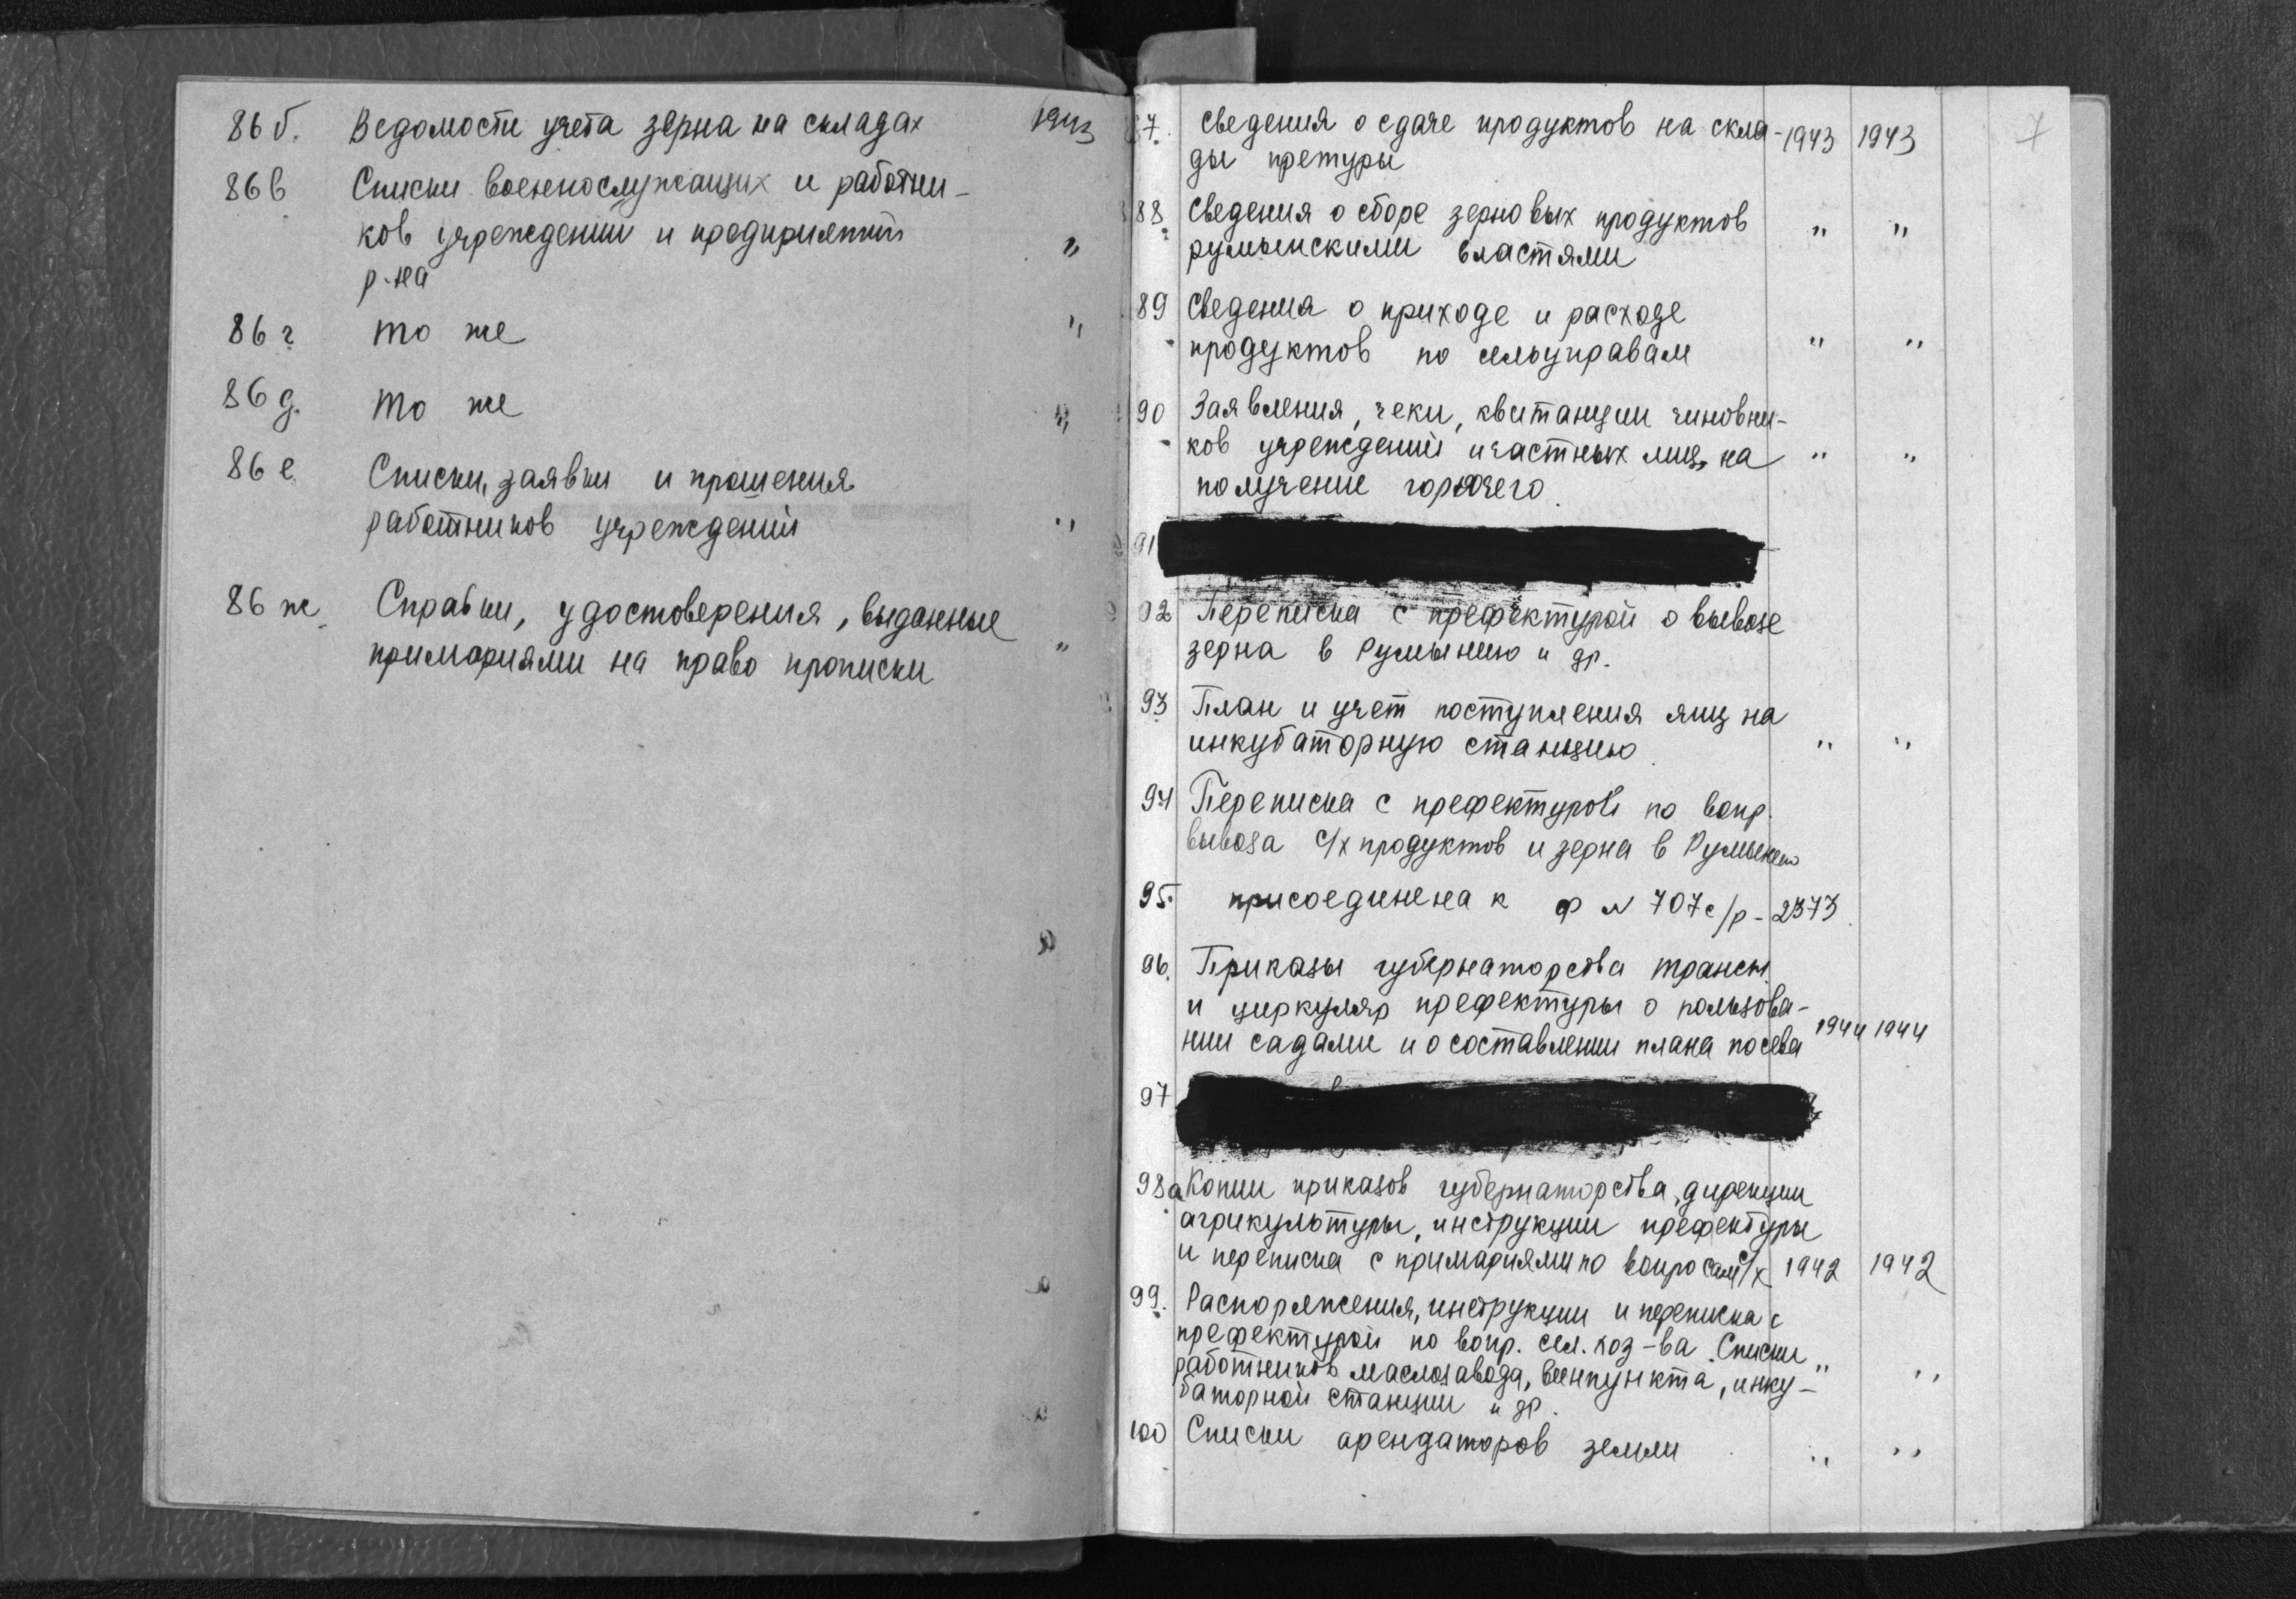 86 б. Ведомости учета зерна на складах 1943
86 в Списки военнослужащих и работни-
ков учреждений и предприятий "
р-на
86 г то же "
86 д. то же "
86 е Списки, заявки и прошения
работников учреждений "
86 ж. Справки, удостоверения, выданные
примариями на право прописки "
7
87. Сведения о сдаче продуктов на скла- 1943 1943
ды претуры
88. Сведения о сборе зерновых продуктов
румынскими властями " "
89 Сведения о приходе и расходе
продуктов по сельуправам " "
90 Заявления, чеки, квитанции чиновни-
ков учреждений и частных лиц, на " "
получение горючего.
91
92 Переписка с префектурой о вывозе
зерна в Румынию и др.
93 План и учет поступления яиц на
инкубаторную станцию " "
94 Переписка с префектурой по вопр.
вывоза с/х продуктов и зерна в Румынию
95. присоединена к ф N 707с/р-2373
96. Приказы губернаторства трансн.
и циркуляр префектуры о пользова-
нии садами и о составлении плана посева 1944 1944
97
98а Копии приказов губернаторства, дирекции
агрикультуры, инструкции префектуры
и переписка с примариями по вопросам с/х 1942 1942
99. Распоряжения, инструкции и переписка с
префектурой по вопр. сел. хоз-ва. Списки
работников маслозавода, веенпункта, инку- " "
баторной станции и др.
100 Списки арендаторов земли " "